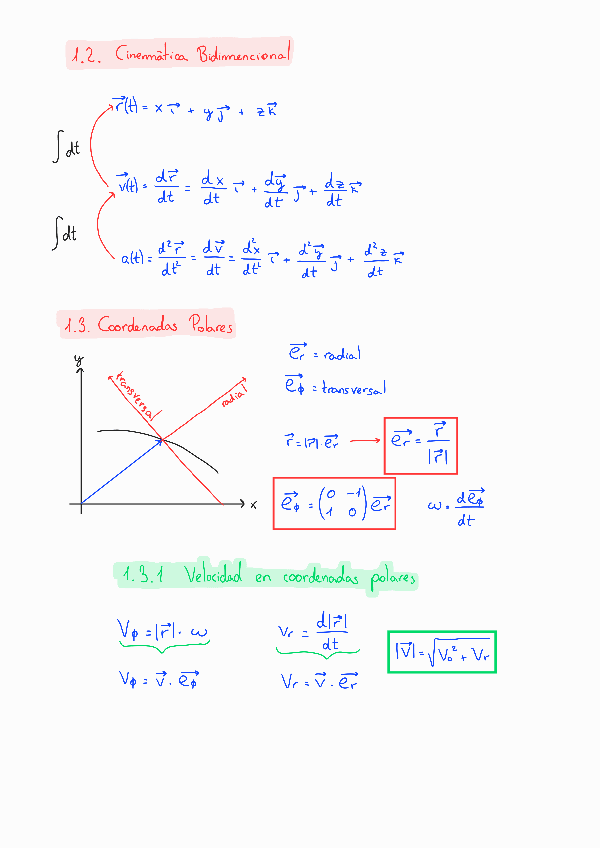 1.2. Cinemática Bidimnencional
r⃗(t) = x i⃗ + y j⃗ + z k⃗
∫dt
v⃗(t) = dr⃗/dt = dx/dt i⃗ + dy⃗/dt j⃗ + dz/dt k⃗
∫dt
a(t) = d²r⃗/dt² = dv⃗/dt = d²x/dt² i⃗ + d²y⃗/dt j⃗ + d²z/dt k⃗
1.3. Coordenadas Polares
y
transversal
radial
x
e⃗r = radial
e⃗ϕ = transversal
r⃗ = |r⃗| · e⃗r → e⃗r = r⃗/|r⃗|
e⃗ϕ = (0 -1; 1 0) e⃗r
ω = de⃗ϕ/dt
1.3.1 Velocidad en coordenadas polares
Vϕ = |r⃗| · ω
Vr = d|r⃗|/dt
|V⃗| = √(V₀² + Vr)
Vϕ = v⃗ · e⃗ϕ
Vr = v⃗ · e⃗r